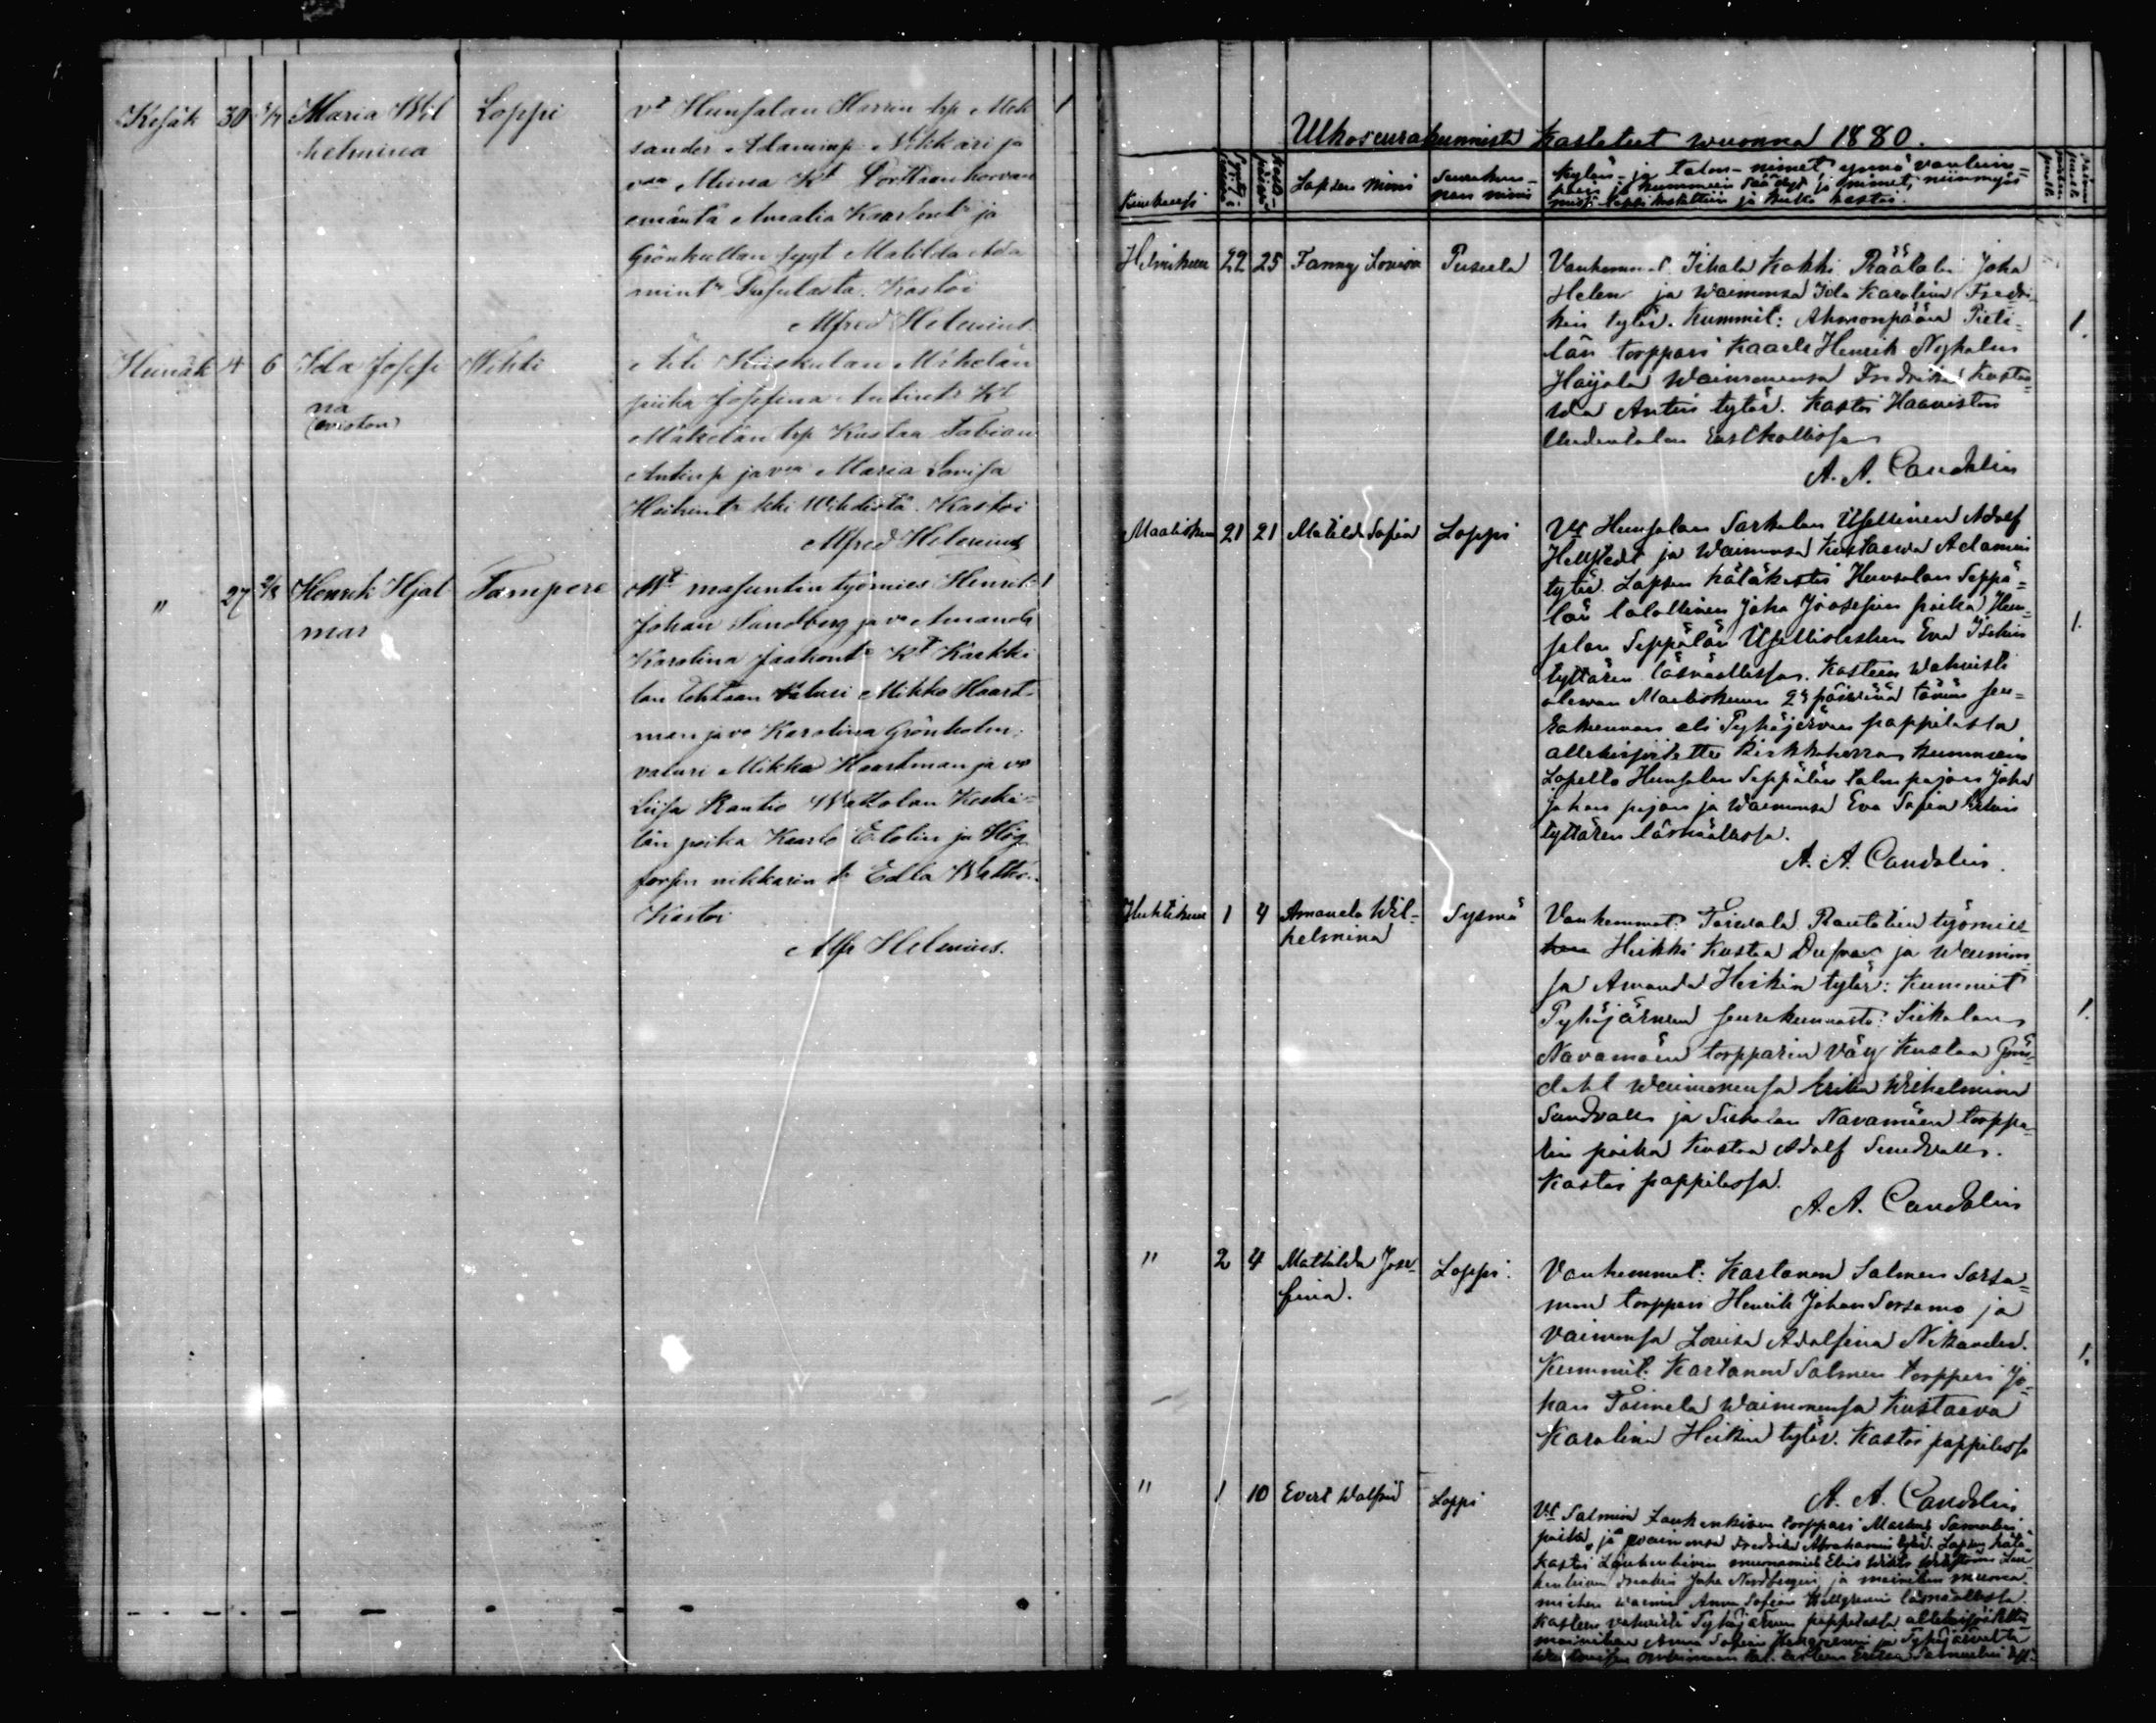 Kesäk 30 5/7 Maria Wil Loppi vt Hunsalan Harrin trp Alek 1
helmina sander Adaminp Nikkari ja
vmo Miina Kt Porttaankorvan
emäntä Amalia Kaarlent ja
Grönkullan pygt Matilda Ada
mint Pusulasta. Kastoi
Alfred Helenius.
Heinäk 4 6 Ida Josefi Wihti Äiti Hiiskulan Mäkelän
na piika Josefina Antint Kt
(avioton) Mäkelän trp Kustaa Fabian
Antinp ja vmo Maria Lovisa
Heikint kki Wihdistä. Kastoi
Alfred Helenius
" 27 2/8 Henrik Hjal Tampere Wt masuntin työmies Henrik 1
mar Johan Sandberg ja vo Amanda
Karolina Jaakont Kt Kärkki
lan tehtaan valuri Mikko Haart
man ja vo Karolina Grönholm,
valuri Mikko Haartman ja vo
Liisa Rantio Wattolan Keski-
län poika Kaarlo Eklolin ja Hög
forsin nikkarin tr Edla
Kastoi
Alfr Helenius.
Ulkoseurakunnista kastetut wuonna 1880.
Kuukausi Lapsen nimi Seurakun- Kylän- ja talon- nimet, ynnä vanhem-
nan nimi pain ja kummein säädyt ja nimet, niinmyös
missä lapsi kastettiin ja kuka kastoi.
Helmikuu 22 25 Fanny Lovisa Pusula Vanhemmat: Ikkala Kokki Räätäli Joha
Helen ja waimonsa Ida Karolina Fredri-
kin tytär. Kummit: Ahmonpään Pieti- 1.
län torppari Kaarle Henrik Nyholm
Haijala Waimonensa Fredrika Kusta-
wa Antin tytär. Kastoi Haaviston
Uudentalon
A. A. Candolin
Maaliskuu 21 21 Matilda Sofia Loppi Vt Hunsalan Sorkolan Itsellinen Adolf
Hellstedt ja Waimonsa Kustaava Adamin
tytär. Lapsen hätäkasti Hunsalan Seppä-
län talollinen Joha Joosepin poika Hun- 1.
salan Seppälän Itsellislesken Eva Iisakin
tyttären läsnäollessa. Kasteen Wahvisti
olewan Maaliskuun päivänä tämän seu-
rakunnan eli Pyhäjärven pappilassa
allekirjoitettu kirkkoherra kummein
Lopelta Hunsalan Seppälän talon pojan Joha
Johan pojan ja Waimonsa Eva Sofia
tyttären läsnäollessa.
A. A. Candolin.
Huhtikuu 1 4 Amanda Wil- Sysmä Vanhemmat: Toiwala Rautalin työmies
helmina Heikki Kustaa Dufva ja Waimon-
sa Amanda Heikin tytär: Kummit
Pyhäjärven seurakunnasta: Siikalan 1.
Navamäen torpparin väy Kustaa Grön-
dahl Waimonensa Erika Wilhelmina
Sundvall ja Siikalan Navamäen torppa-
rin poika Kustaa Adolf Sundvall.
Kastoi pappilassa.
A. A. Candolin
" 2 4 Mathilda Jose- Loppi. Vanhemmat: Kartanon Salmen Sorsa-
fina. mon torppari Henrik Johan Sorsamo ja
Vaimonsa Lovisa Adolfina Nikander.
Kummit: Kartanon Salmen torppari Jo- 1.
han Toimela Waimonensa Kustaava
Karolina Heikin tytär. Kastoi pappilassa
A. A. Candolin
" 1 10 Evert Walfrid Loppi Vt Salmen Laukenkiven torppari Markus Samulin
poika, ja waimonsa Fredrika Abrahamin tytär. Lapsen hätä-
kastoi Laukenkiven
Joha Nordbergin ja mainitun muona-
miehen waimon Anna Sofia läsnäollessa.
Kasteen vahvisti Pyhäjärven pappilassa allekirjoitettu
mainitun Anna Sofia ja Pyhäjärveltä